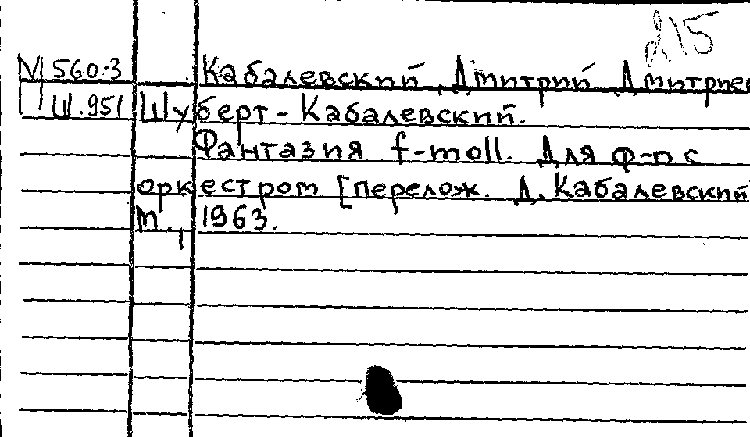 215
М 560-3 Кабалевский, Дмитрий Дмитрие
Ш.951 Шуберт-Кабалевский.
Фантазия f-moll. Для ф-п с
оркестром [перелож. Д. Кабалевский
m., 1963.